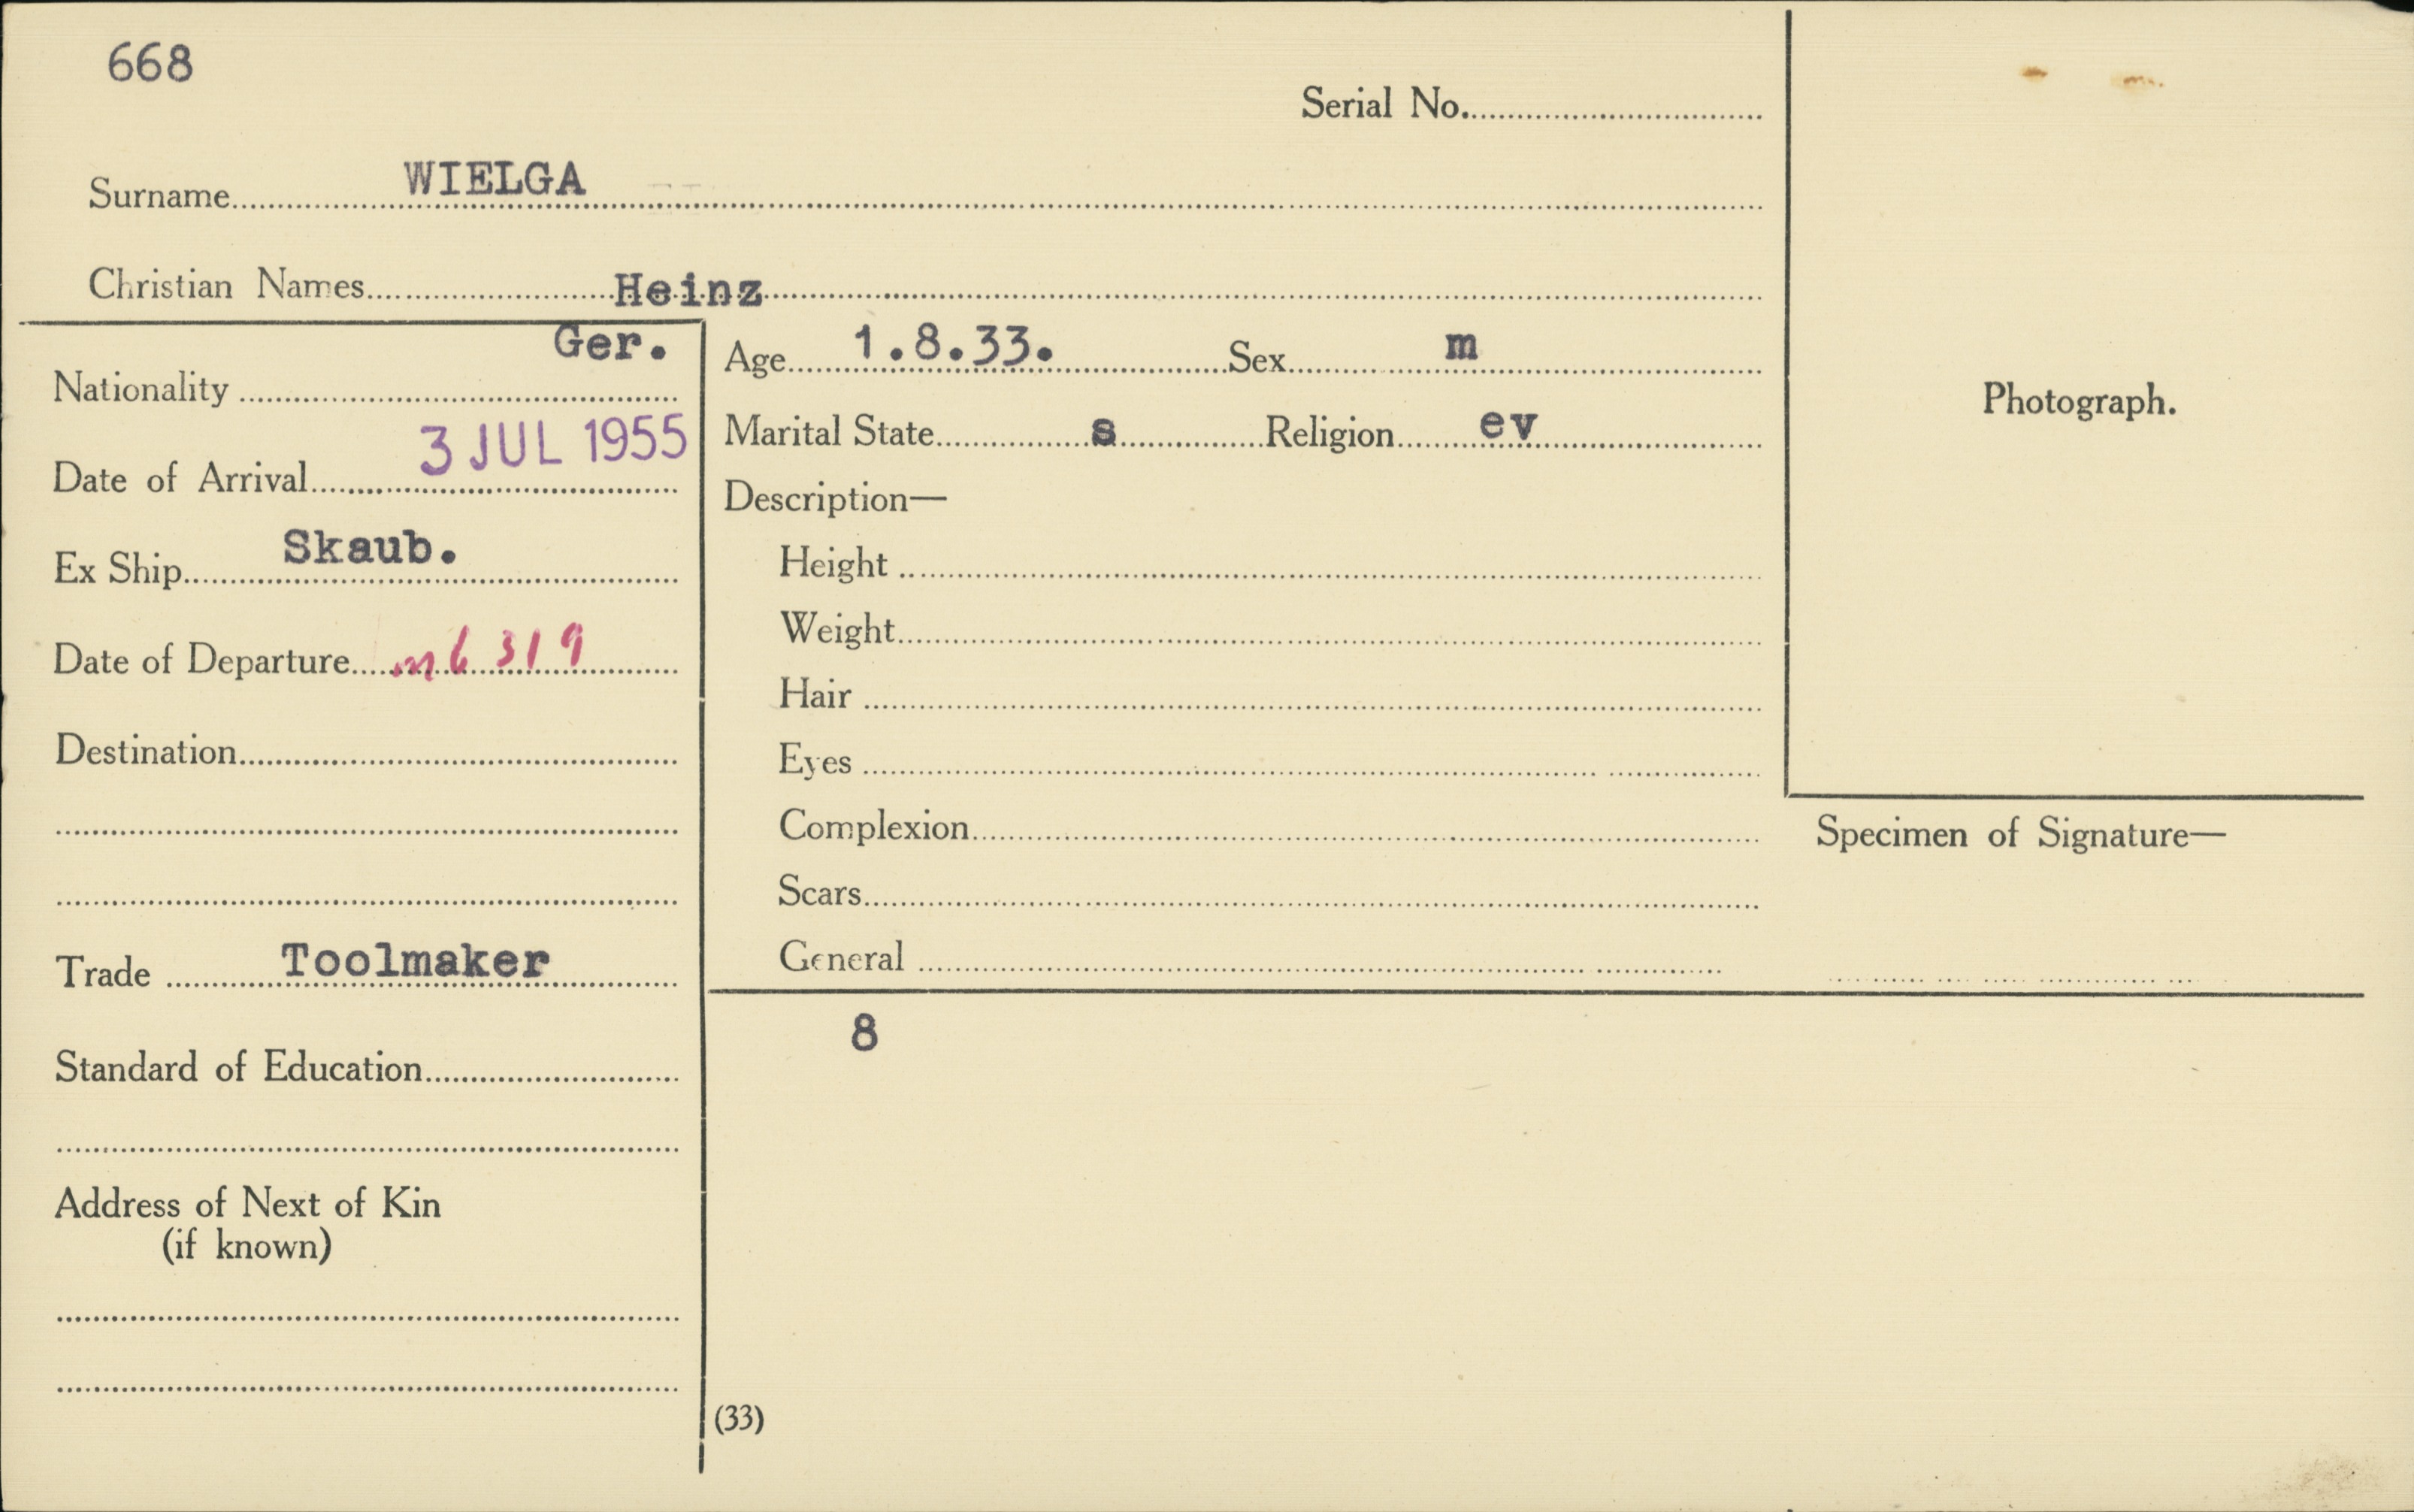 668
Serial No.
Surname WIELGA
Christian Names Heinz
Nationality Ger.
Date of Arrival 3 JUL 1955
Ex Ship Skaub.
Date of Departure m6 319
Destination
Trade Toolmaker
Standard of Education
Address of Next of Kin
(if known)
Age 1.8.33. Sex m
Marital State s Religion ev
Description—
Height
Weight
Hair
Eyes
Complexion
Scars
General
8
(33)
Photograph.
Specimen of Signature—